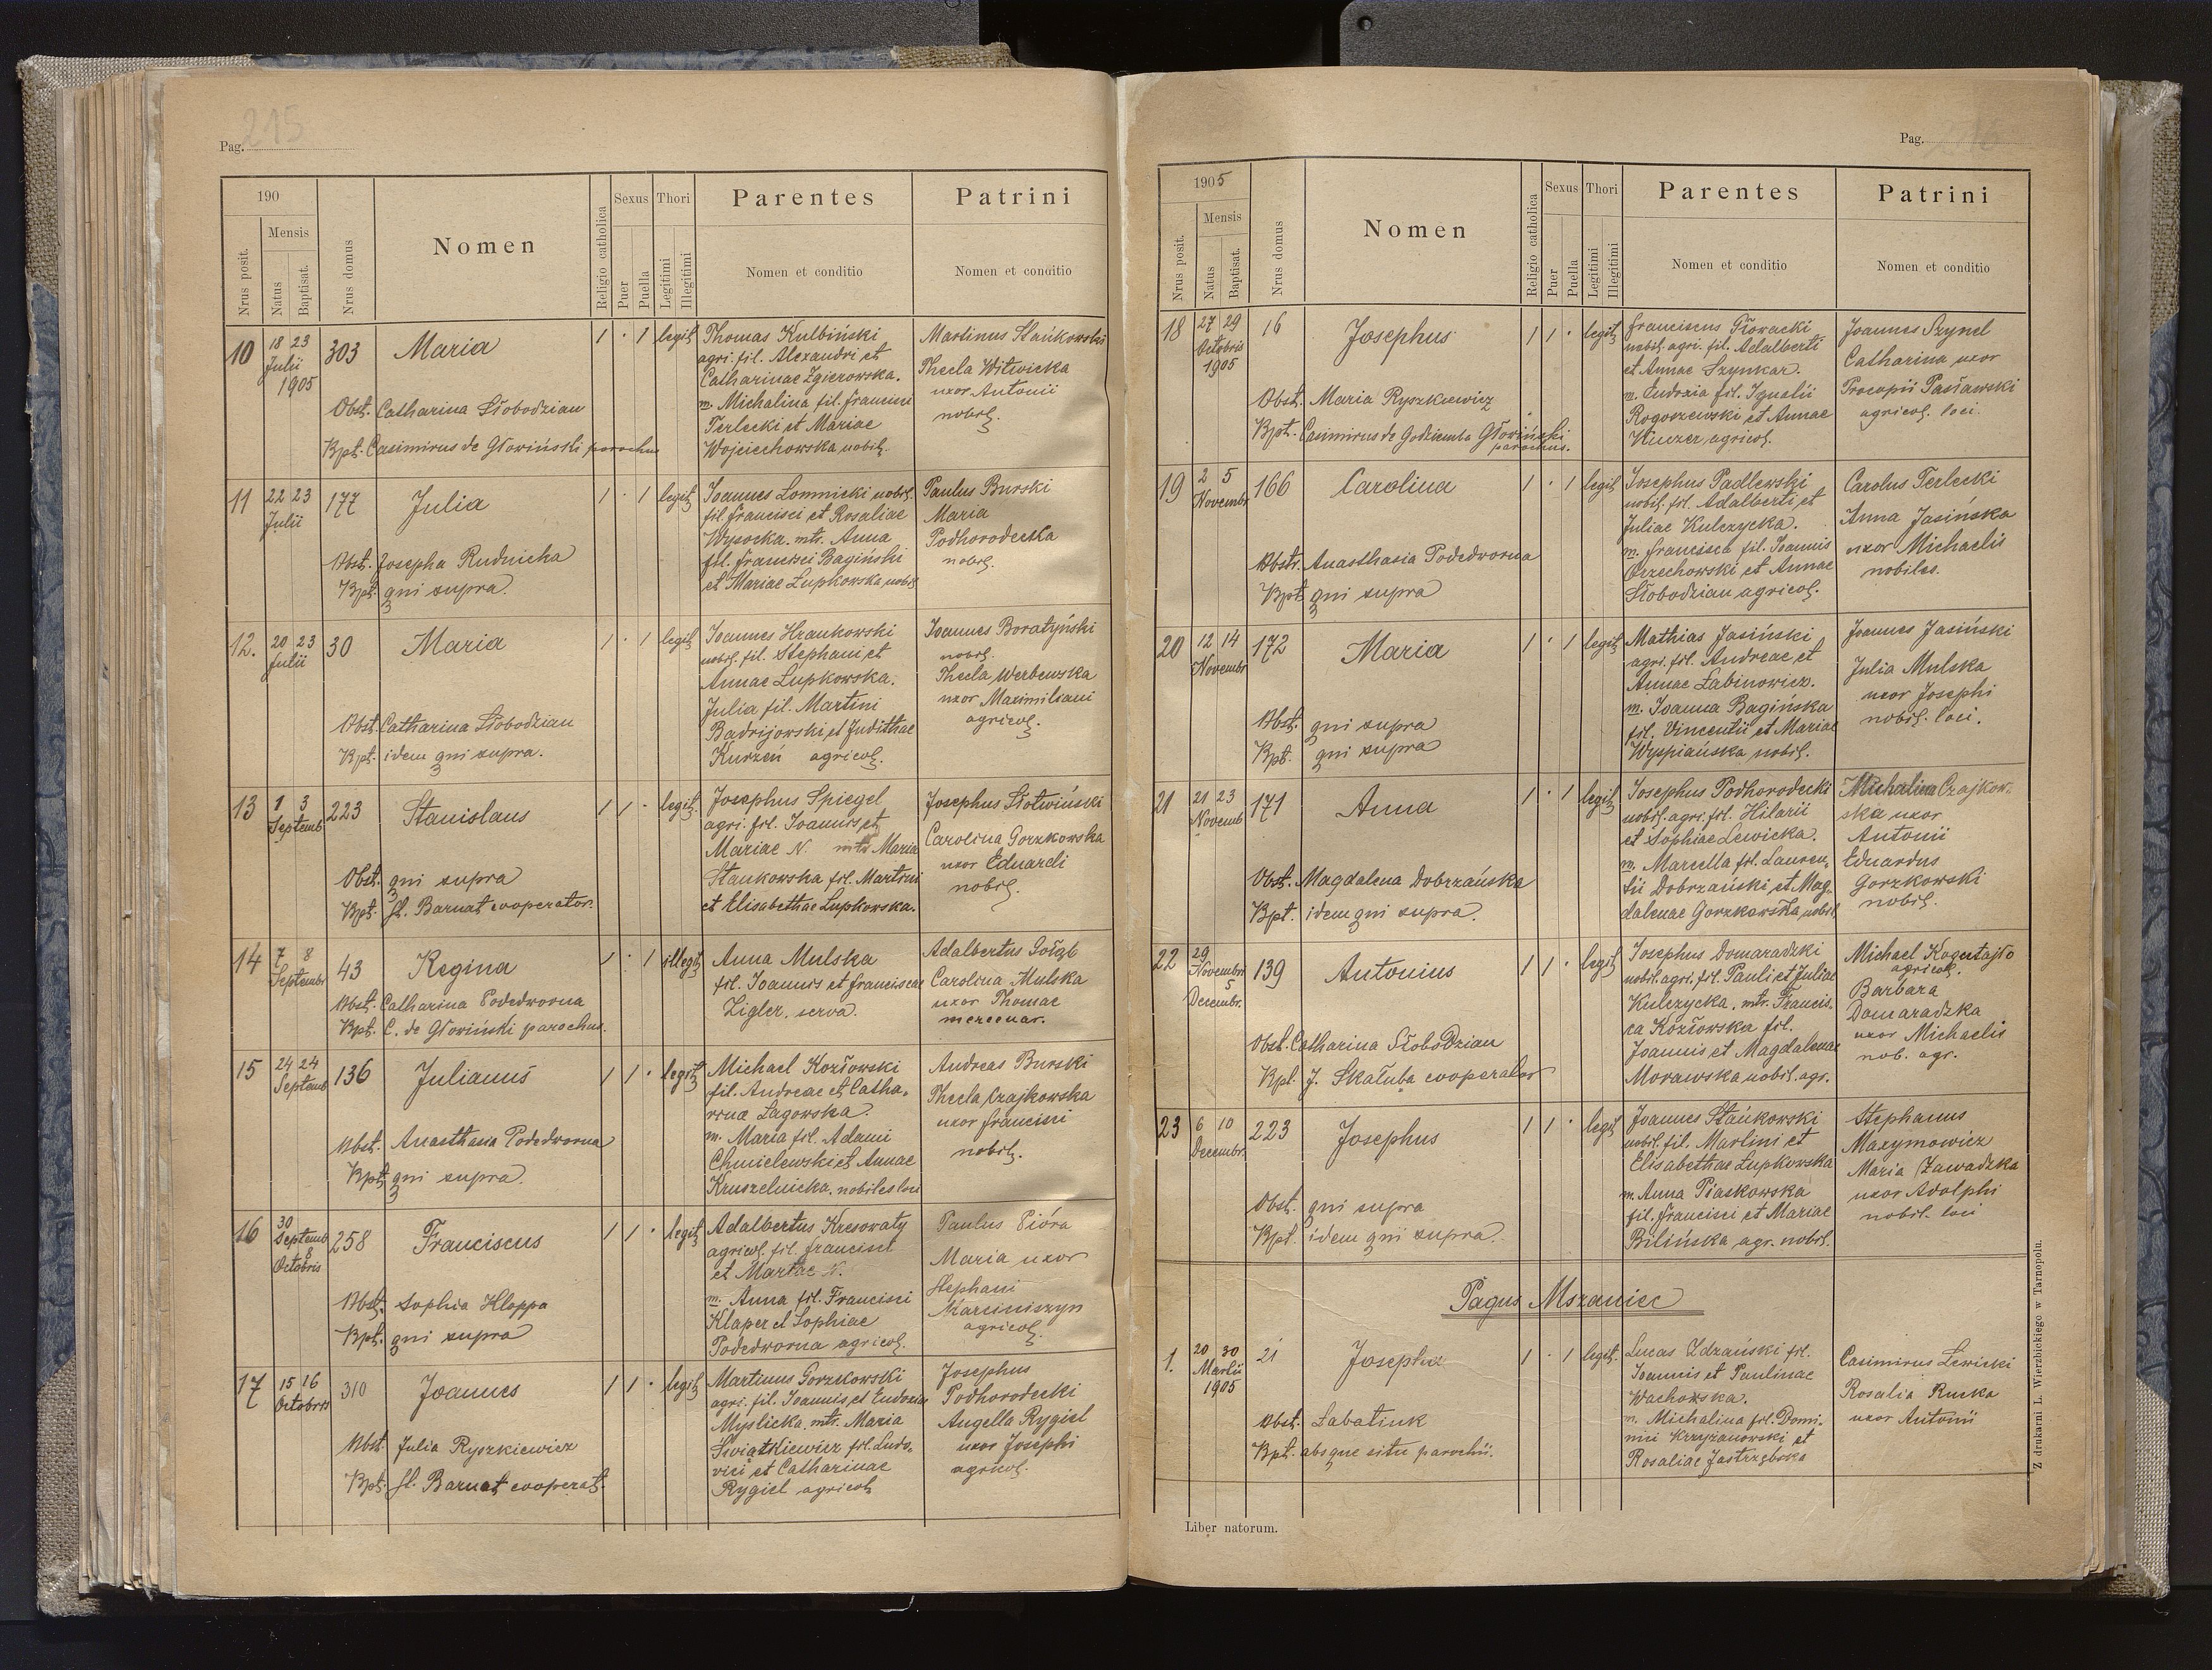 Pag. 215
190
Nrus posit.
Mensis
Natus
Baptisat.
Nrus domus
Nomen
Religio catholica
Sexus
Puer
Puella
Thori
Legitimi
Illegitimi
Parentes
Nomen et conditio
Patrini
Nomen et conditio
10
18 23
Julii
1905
303
Maria
Obst. Catharina Słobodzian
Bpt. Casimirus de Głowiński parochus
1 · 1 legit
Thomas Kulbiński
agri. fil. Alexandri et
Catharinae Zgierowska.
m. Michalina fil. Francisci
Terlecki et Mariae
Wojciechowska nobil.
Martinus Stańkowski
Thecla Witwicka
uxor Antonii
nobil.
11
22 23
Julii
177
Julia
Obst. Josepha Rudnicka
Bpt. qui supra
1 · 1 legit
Joannes Łomnicki nobil.
fil. Francisci et Rosaliae
Wysocka. mtr. Anna
fil. Francisci Bagiński
et Mariae Łupkowska nobil
Paulus Burski
Maria
Podhorodecka
nobil.
12.
20 23
Julii
30
Maria
Obst. Catharina Słobodzian
Bpt. idem qui supra.
1 · 1 legit
Joannes Hrankowski
nobil. fil. Stephani et
Annae Łupkowska.
Julia fil. Martini
Badrijowski et Judithae
Kurzeń agricol.
Joannes Boratyński
nobil.
Thecla Werbenska
uxor Maximiliani
agricol.
13
1 3
Septemb
223
Stanislaus
Obst. qui supra
Bpt. fl. Barnat cooperator.
1 1 · legit.
Josephus Spiegel
agri. fil. Joannis et
Mariae N. mtr Maria
Stankowska fil. Martini
et Elisabethae Łupkowska.
Josephus Słotwiński
Carolina Gorzkowska
uxor Eduardi
nobil.
14
7 8
Septembr
43
Regina
Obst. Catharina Podedworna
Bpt. C. de Głowiński parochus.
1 · 1 illegit
Anna Mulska
fil. Joannis et Franciscae
Zigler. serva.
Adalbertus Gołąb
Carolina Mulska
uxor Thomae
mercenar.
15
24 24
Septemb
136
Julianus
Obst. Anasthasia Podedworna
Bpt. qui supra
1 1 · legit
Michael Kozłowski
fil. Andreae et Catha-
rina Lagowska.
m. Maria fil. Adami
Chmielewski et Annae
Kruszelnicka, nobiles loci
Andreas Burski
Thecla Czajkowska
uxor Francisci
nobil.
16
30
Septemb
8
Octobris
258
Franciscus
Obst. Sophia Kloppa
Bpt. qui supra
1 1 · legit
Adalbertus Kresowaty
agricol. fil. Francisci
et Martae N.
m. Anna fil. Francisci
Klaper et Sophiae
Podedworna agricol.
Paulus Pióra
Maria uxor
Stephani
Marciniszyn
agricol.
17
15 16
Octobris
310
Joannes
Obst. Julia Ryszkiewicz
Bpt. fl. Barnat cooperat.
1 1 · legit
Martinus Gorzkowski
agri. fil. Joannis et Eudoxiae
Myslicka. mtr. Maria
Świątkiewicz fil. Ludo-
vici et Catharinae
Rygiel agricol
Josephus
Podhorodecki
Angella Rygiel
uxor Josephi
agricol.
Pag.
1905
Nrus posit.
Mensis
Natus
Baptisat.
Nrus domus
Nomen
Religio catholica
Sexus
Puer
Puella
Thori
Legitimi
Illegitimi
Parentes
Nomen et conditio
Patrini
Nomen et conditio
18
27 29
Octobris
1905
16
Josephus
Obst. Maria Ryszkiewicz
Bpt. Casimirus de Godziemba Głowiński
parochus.
1 1 · legit
Franciscus Głowacki
nobil. agri. fil. Adalberti
et Annae Szynkar.
m. Eudoxia fil. Ignatii
Rogoszewski et Annae
Winzer, agricol.
Joannes Szynel
Catharina uxor
Procopii Pasławski
agricol. loci.
19
2 5
Novembr
166
Carolina
Obstr. Anasthasia Podedworna
Bpt qui supra
1 · 1 legit
Josephus Padlewski
nobil. fil. Adalberti et
Juliae Kulczycka.
m. Francisca fil. Joannis
Orzechowski et Annae
Słobodzian agricol.
Carolus Terlecki
Anna Jasińska
uxor Michaelis
nobiles.
20
12 14
Novembr
172
Maria
Obst. qui supra
Bpt. qui supra
1 · 1 legit
Mathias Jasiński
agri. fil. Andreae et
Annae Łabinowicz.
m. Joanna Bagińska
fil. Vincentii et Mariae
Wyspiańska nobil.
Joannes Jasiński
Julia Mulska
uxor Josephi
nobil. loci.
21
21 23
Novemb
171
Anna
Obst. Magdalena Dobrzańska
Bpt. idem qui supra.
1 · 1 legit
Josephus Podhorodecki
nobil. agri. fil. Hilarii
et Sophiae Lewicka.
m. Marcella fil. Lauren-
tii Dobrzański et Mag-
dalenae Gorzkowska nobil
Michalina Czajkow-
ska uxor
Antonii
Eduardus
Gorzkowski
nobil.
22
29
Novembris
5
Decembr.
139
Antonius
Obst. Catharina Słobodzian
Bpt. J. Skałuba cooperator
1 1 · legit
Josephus Domaradzki
nobil. agri. fil. Pauli et Juliae
Kulczycka, mtr. Francis-
ca Kozłowska fil.
Joannis et Magdalenae
Morawska nobil. agr.
Michael Kogutajło
agricol.
Barbara
Domaradzka
uxor Michaelis
nob. agr.
23
6 10
Decembr.
223
Josephus
Obst. qui supra
Bpt. idem qui supra.
1 1 · legit
Joannes Stańkowski
nobil. fil. Martini et
Elisabethae Łupkowska
m. Anna Piaskowska
fil. Francisci et Mariae
Bilińska agr. nobil.
Stephanus
Maxymowicz
Maria Zawadzka
uxor Adolphi
nobil. loci
Pagus Mszaniec
1.
20 30
Martii
1905
21
Josepha
Obst. Łabatiuk
Bpt. absque situ parochii.
1 · 1 legit.
Lucas Zdzański fil.
Joannis et Paulinae
Wachowska.
m. Michalina fil. Domi-
nici Krzyżanowski et
Rosaliae Jastrzębska
Casimirus Lewicki
Rosalia Rucka
uxor Antonii
Liber natorum.
Z drukarni L. Wierzbickiego w Tarnopolu.